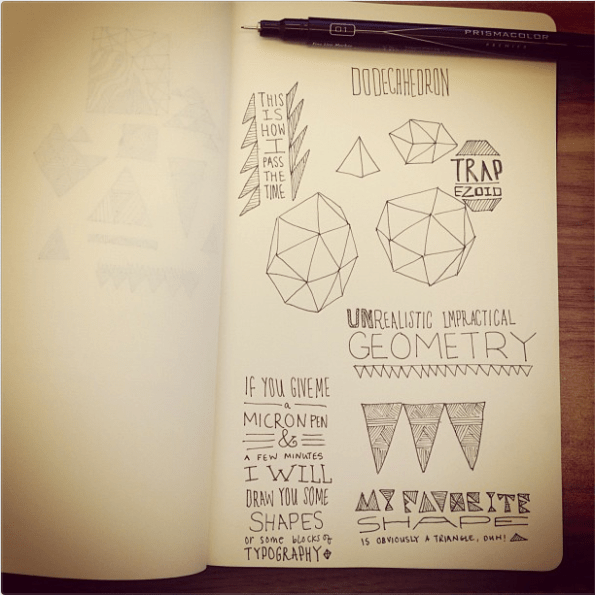 01
PRISMACOLOR
PREMIER
DODECAHEDRON
THIS
IS
HOW
I
PASS
THE
TIME
TRAP
EZOID
UNREALISTIC IMPRACTICAL
GEOMETRY
IF YOU GIVE ME
a
MICRON PEN
&
A FEW MINUTES
I WILL
DRAW YOU SOME
SHAPES
or some blocks of
TYPOGRAPHY
MY FAVORITE
SHAPE
IS OBVIOUSLY A TRIANGLE, DUH!